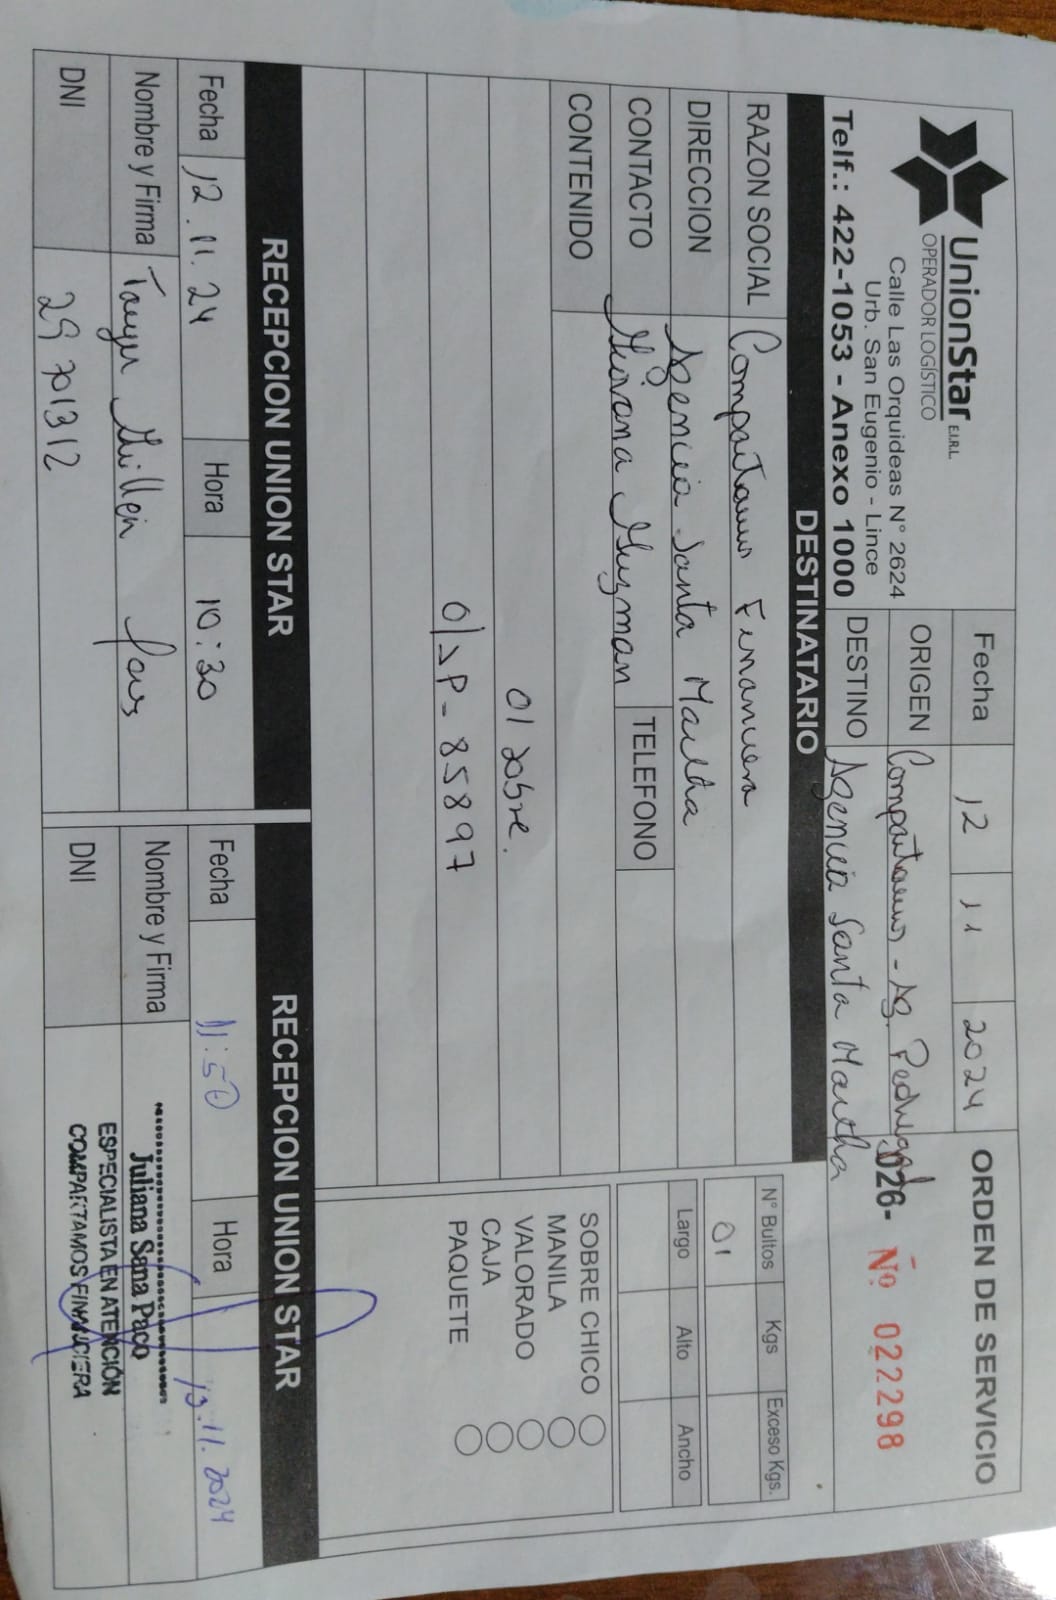 UnionStar E.I.R.L.
OPERADOR LOGÍSTICO
Calle Las Orquideas N° 2624
Urb. San Eugenio - Lince
Telf.: 422-1053 - Anexo 1000
Fecha 12 11 2024
ORIGEN Compartamos - Ag. Pedregal
DESTINO Agencia Santa Martha
ORDEN DE SERVICIO
026- Nº 022298
DESTINATARIO
RAZON SOCIAL Compartamos Financiera
DIRECCION Agencia Santa Martha
CONTACTO Guzman TELEFONO
CONTENIDO
01 sobre.
85897
N° Bultos Kgs Exceso Kgs.
01
Largo Alto Ancho
SOBRE CHICO
MANILA
VALORADO
CAJA
PAQUETE
RECEPCION UNION STAR
Fecha 12.11.24 Hora 10:30
Nombre y Firma Guillen
DNI 29701312
RECEPCION UNION STAR
Fecha 11:50 Hora 13.11.2024
Nombre y Firma
DNI
Juliana Sana Paco
ESPECIALISTA EN ATENCIÓN
COMPARTAMOS FINANCIERA